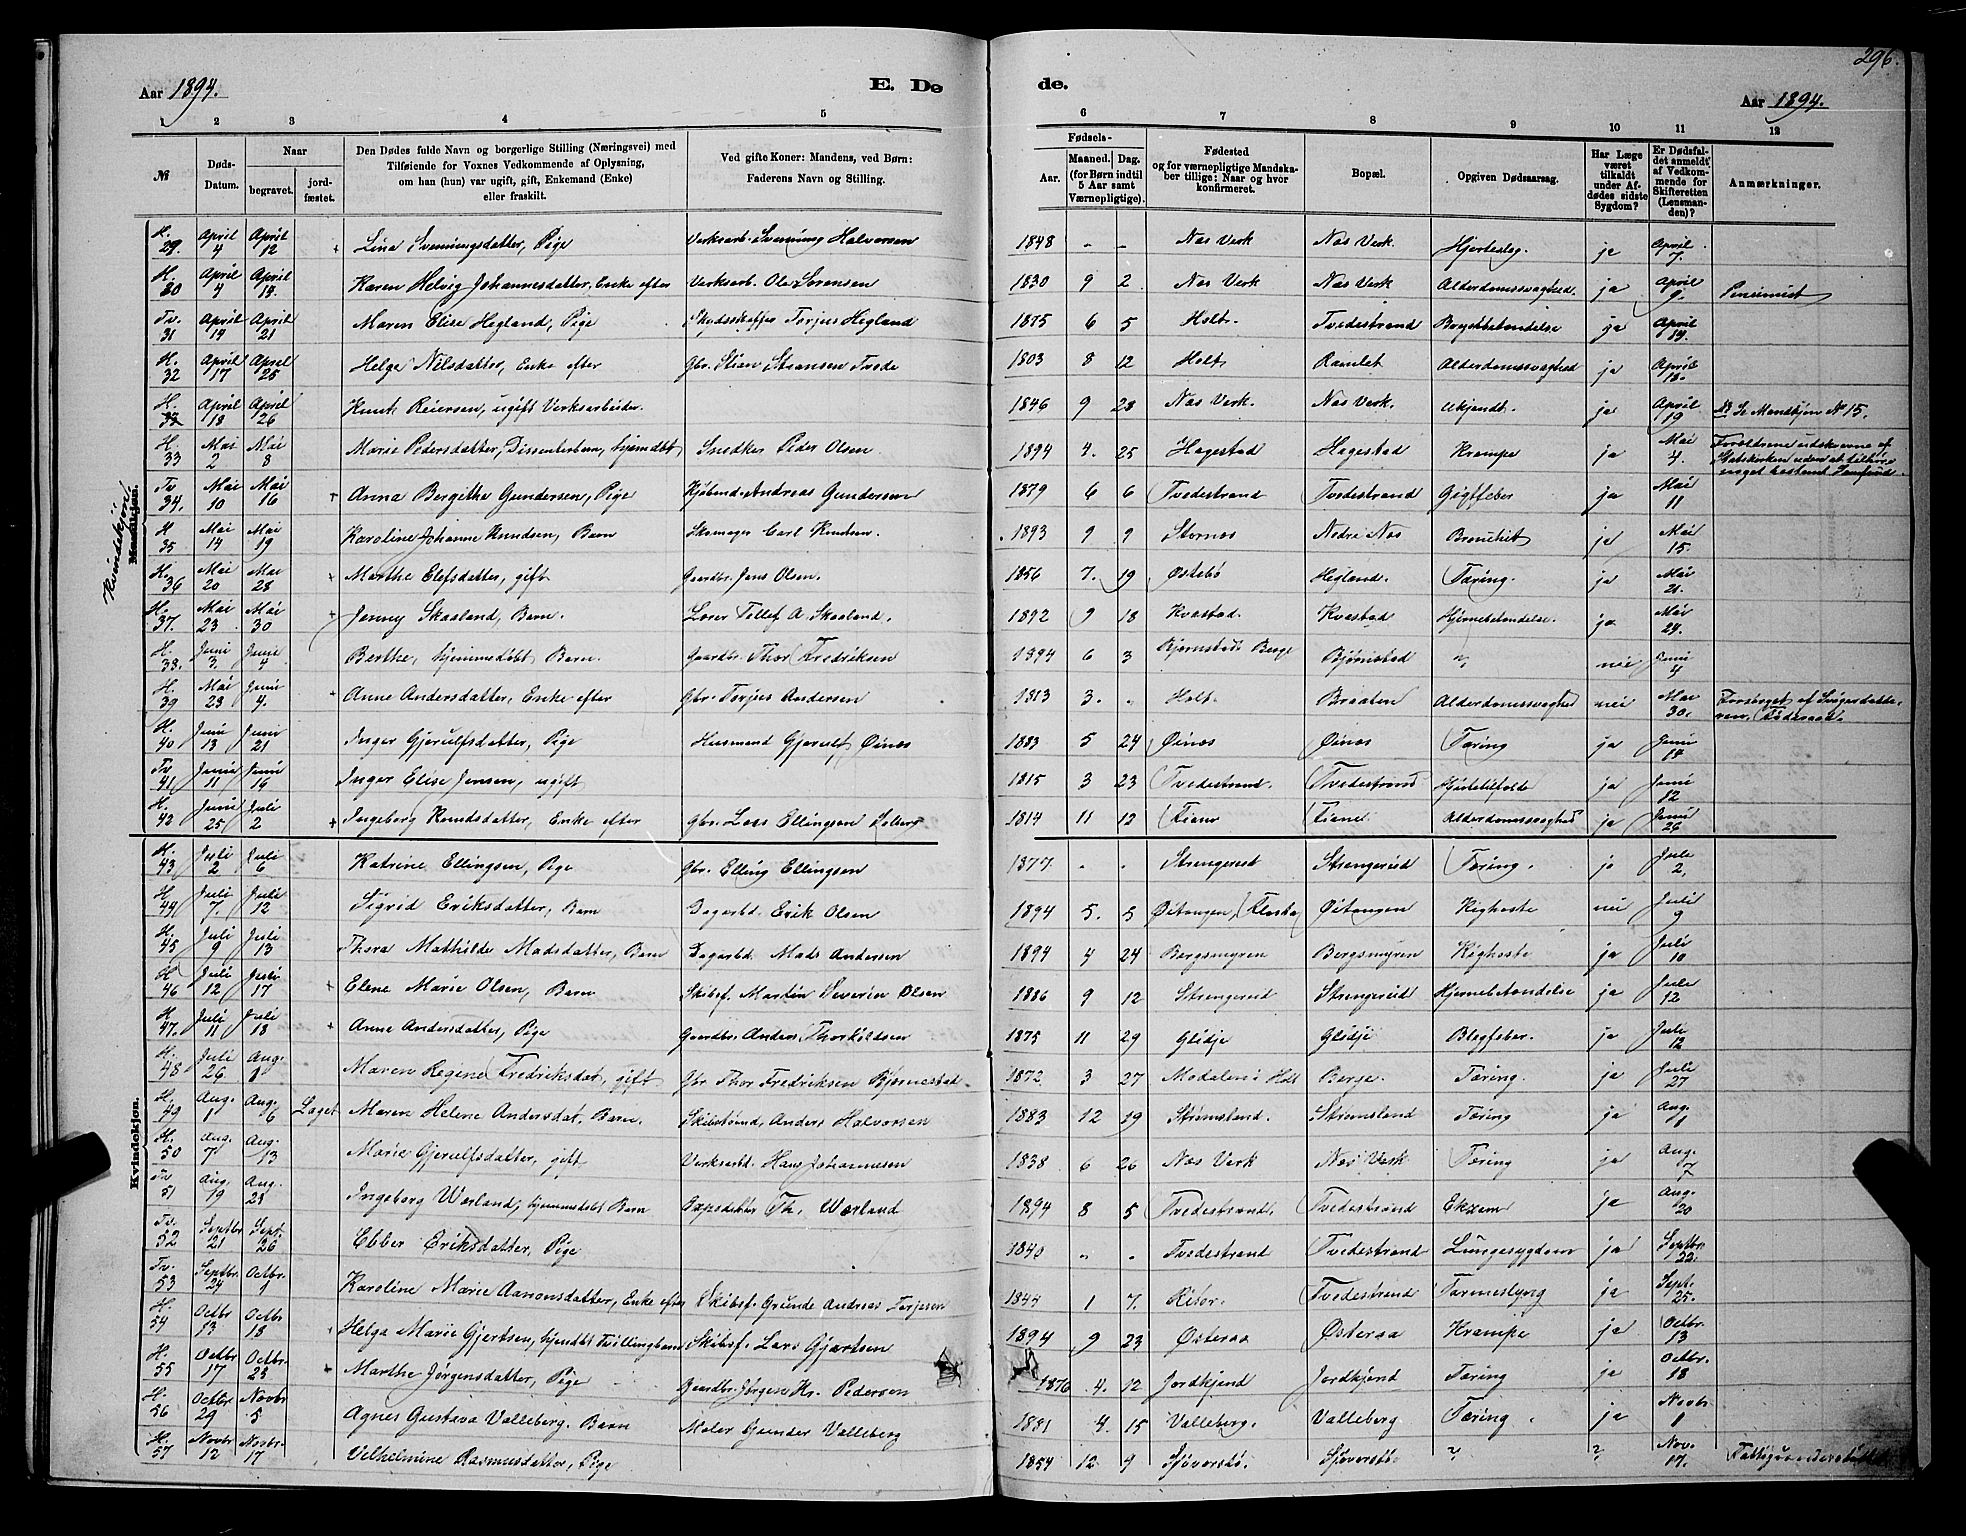 296.
Aar 1894.
E. Dø
de.
Aar 1894.
1 2 3 4 5 6 7 8 9 10 11 12
No
Døds-
Datum.
Naar
begravet.
jord-
fæstet.
Den Dødes fulde Navn og borgerlige Stilling (Næringsvei) med
Tilføiende for Voxnes Vedkommende af Oplysning,
om han (hun) var ugift, gift, Enkemand (Enke)
eller fraskilt.
Ved gifte Koner: Mandens, ved Børn:
Faderens Navn og Stilling.
Fødsels-
Aar.
Maaned. Dag.
(for Børn indtil
5 Aar samt
Værnepligtige).
Fødested
og for værnepligtige Mandska-
ber tillige: Naar og hvor
konfirmeret.
Bopæl.
Opgiven Dødsaarsag.
Har Læge
været
tilkaldt
under Af-
dødes sidste
Sygdom?
Er Dødsfal-
det anmeldt
af Vedkom-
mende for
Skifteretten
(Lensman-
den)?
Anmærkninger.
Kvindekjøn!
Mandkjøn.
H. 29. April 4 April 12 + Lina Svenningsdatter, Pige Verksarb. Svenning Halvorsen 1848 - - Næs Verk Næs Verk. Hjerteslag. ja April 7.
H. 30 April 4 April 14. Karen Helvig Johannesdatter, Enke efter Verksarb. Ole Sørensen 1830 9 2 Næs Verk Næs Verk Alderdomssvaghed. ja April 9. Pensionist
Tv. 31 April 14 April 21 Maren Elise Hegland, Pige Skydsskaffer Torjus Hegland 1875 6 5 Holt. Tvedestrand Brystbetændelse ja April 14.
H. 32 April 17 April 25 Helge Nilsdatter, Enke efter Gbr. Stian Stiansen Tvede 1803 8 12 Holt, Ramlet Alderdomssvaghed ja April 18.
H. 32 April 18 April 26 Knut Reiersen, ugift Verksarbeider. 1846 9 28 Næs Verk. Næs Verk. Ukjendt. ja April 19 NB Se Mandkjøn No 15.
H. 33 Mai 2 Mai 8 Marie Pedersdatter, Dissenterbarn, hjemdøbt Snedker Peder Olsen 1894 4. 25 Hagestad Hagestad Krampe ja Mai 4. Forældrene udskrevne af
Statskirken uden at tilhøre
noget bestemt Samfund.
Tv 34. Mai 10 Mai 16 + Anna Bergithe Gundersen, Pige Kjøbmd. Andreas Gundersen 1879 6 6 Tvedestrand Tvedestrand Gigtfeber ja Mai 11
H 35 Mai 14 Mai 19 Karoline Johanne Knudsen, Barn Skomager Carl Knudsen. 1893 9 9 Stornæs Nedre Næs Bronchit ja Mai 15.
H. 36 Mai 20 Mai 28 + Marthe Elefsdatter, gift Gaardbr. Jens Olsen. 1856 7. 19 Østebø Hegland. Tæring. ja Mai 21.
H. 37. Mai 23 Mai 30 + Jenny Skaaland, Barn. Lærer Tellef A. Skaaland. 1892 9 18 Kvastad. Kvastad Hjernebetændelse. ja Mai 24.
H. 38. Juni 3. Juni 4 Berthe, hjemmedøbt Barn. Gaardbr. Thor Fredriksen 1894 6 3 Bjørnstad Berge Bjørnstad nei Juni 4
H. 39 Mai 28 Juni 4. + Anne Andersdatter, Enke efter Gbr. Torjus Andersen 1813 3. „ Holt. Braaten Alderdomssvaghed nei Mai 30.
H. 40 Juni 13 Juni 21 Inger Gjerulfsdatter, Pige Husmand Gjerulf Øinæs 1883 5 24 Øinæs Øinæs Tæring ja Juni 14
Tv 41 Juni 11 Juni 16 Inger Elise Jensen, ugift 1815 3 23 Tvedestrand. Tvedestrand Hjertetilfælde ja Juni 12
H. 42 Juni 25 Juli 2 + Ingeborg Knudsdatter, Enke efter Gbr. Lars Ellingsen Solberg 1814 11 12 Fiane Fiane Alderdomssvaghed ja Juni 26
Kvindekjøn.
H. 43 Juli 2 Juli 6 Katrine Ellingsen, Pige Gbr. Elling Ellingsen 1877. „ „ Strengereid Strengereid Tæring. ja Juli 2.
H 44 Juli 7. Juli 12 Sigrid Eriksdatter, Barn Dagarbd. Erik Olsen 1894 5. 5 Øitangen, Flosta Øitangen Kighoste nei Juli 9
H. 45 Juli 9 Juli 13 Thora Mathilde Madsdatter, Barn Dagarbd. Mads Andersen 1894 4 24 Bergsmyren Bergsmyren Kighoste ja Juli 10
H 46 Juli 12 Juli 17 + Elene Marie Olsen, Barn Skibsf. Martin Severin Olsen 1886 9 12 Strengereid Strengereid Hjernebetændelse ja Juli 12
H 47. Juli 11 Juli 18 + Anne Andersdatter, Pige Gaardbr. Anders Thorkildsen 1875 11 29 Glidje Glidje ja Juli 12
H. 48 Juli 26 Aug. 1 Maren Regine Fredriksdat, gift Gbr Thor Fredriksen Bjørnestad 1872. 3 27 Modalen i Holt Berge. Tæring. ja Juli 27
H. 49 Aug. 1 Aug. 6 Laget Maren Helene Andersdat, Barn. Skibstømd, Anders Halvorsen 1883 12 19 Strømsland. Strømsland Tæring ja Aug. 1
H. 50 Aug. 7 Aug. 13 Marie Gjerulfsdatter, gift Verksarbd. Hans Johannesen 1838 6 26 Næs Verk Næs Verk Tæring ja Aug. 7
Tv 51 Aug. 19 Aug. 28 Ingeborg Wærland, hjemmedøbt Barn Expeditør Th. Wærland 1894 8 5 Tvedestrand. Tvedestrand Ekzem ja Aug. 20
Tv. 52 Septbr 21 Sept. 26 Ebber Eriksdatter, Pige 1840 „ „ Tvedestrand Tvedestrand Lungesygdom ja Septbr. 22.
Tv. 53 Septbr. 24 Octbr. 1 Karoline Marie Aanonsdatter, Enke efter Skibsf. Grunde Andreas Terjesen 1844 1 7. Risør. Tvedestrand Tarmeslyng ja Sept. 25.
H. 54 Octbr 13 Octbr 18 + Helga Marie Gjertsen, hjemdbt Tvillingbarn Skibsf. Lars Gjertsen 1894 9 23 Østeraa Østeraa Krampe ja Octbr. 13
H. 55 Octbr 17 Octbr. 23 + Marthe Jørgensdatter, Pige Gaardbr. Jørgen Kr. Pedersen 1876 4. 12 Jordkjend Jordkjend Tæring ja Octbr. 18
H. 56 Octbr 29 Novbr 5 Agnes Gustava Valleberg. Barn Maler Gunder Valleberg 1881 4. 15 Valleberg. Valleberg Tæring. ja Novbr 1
H. 57 Novbr 12 Novbr. 17 Vilhelmine Rasmusdatter, Pige 1854 12 9 Sjøverstø. Sjøverstø ? ? Nov. 17. Fattigunderstøttet